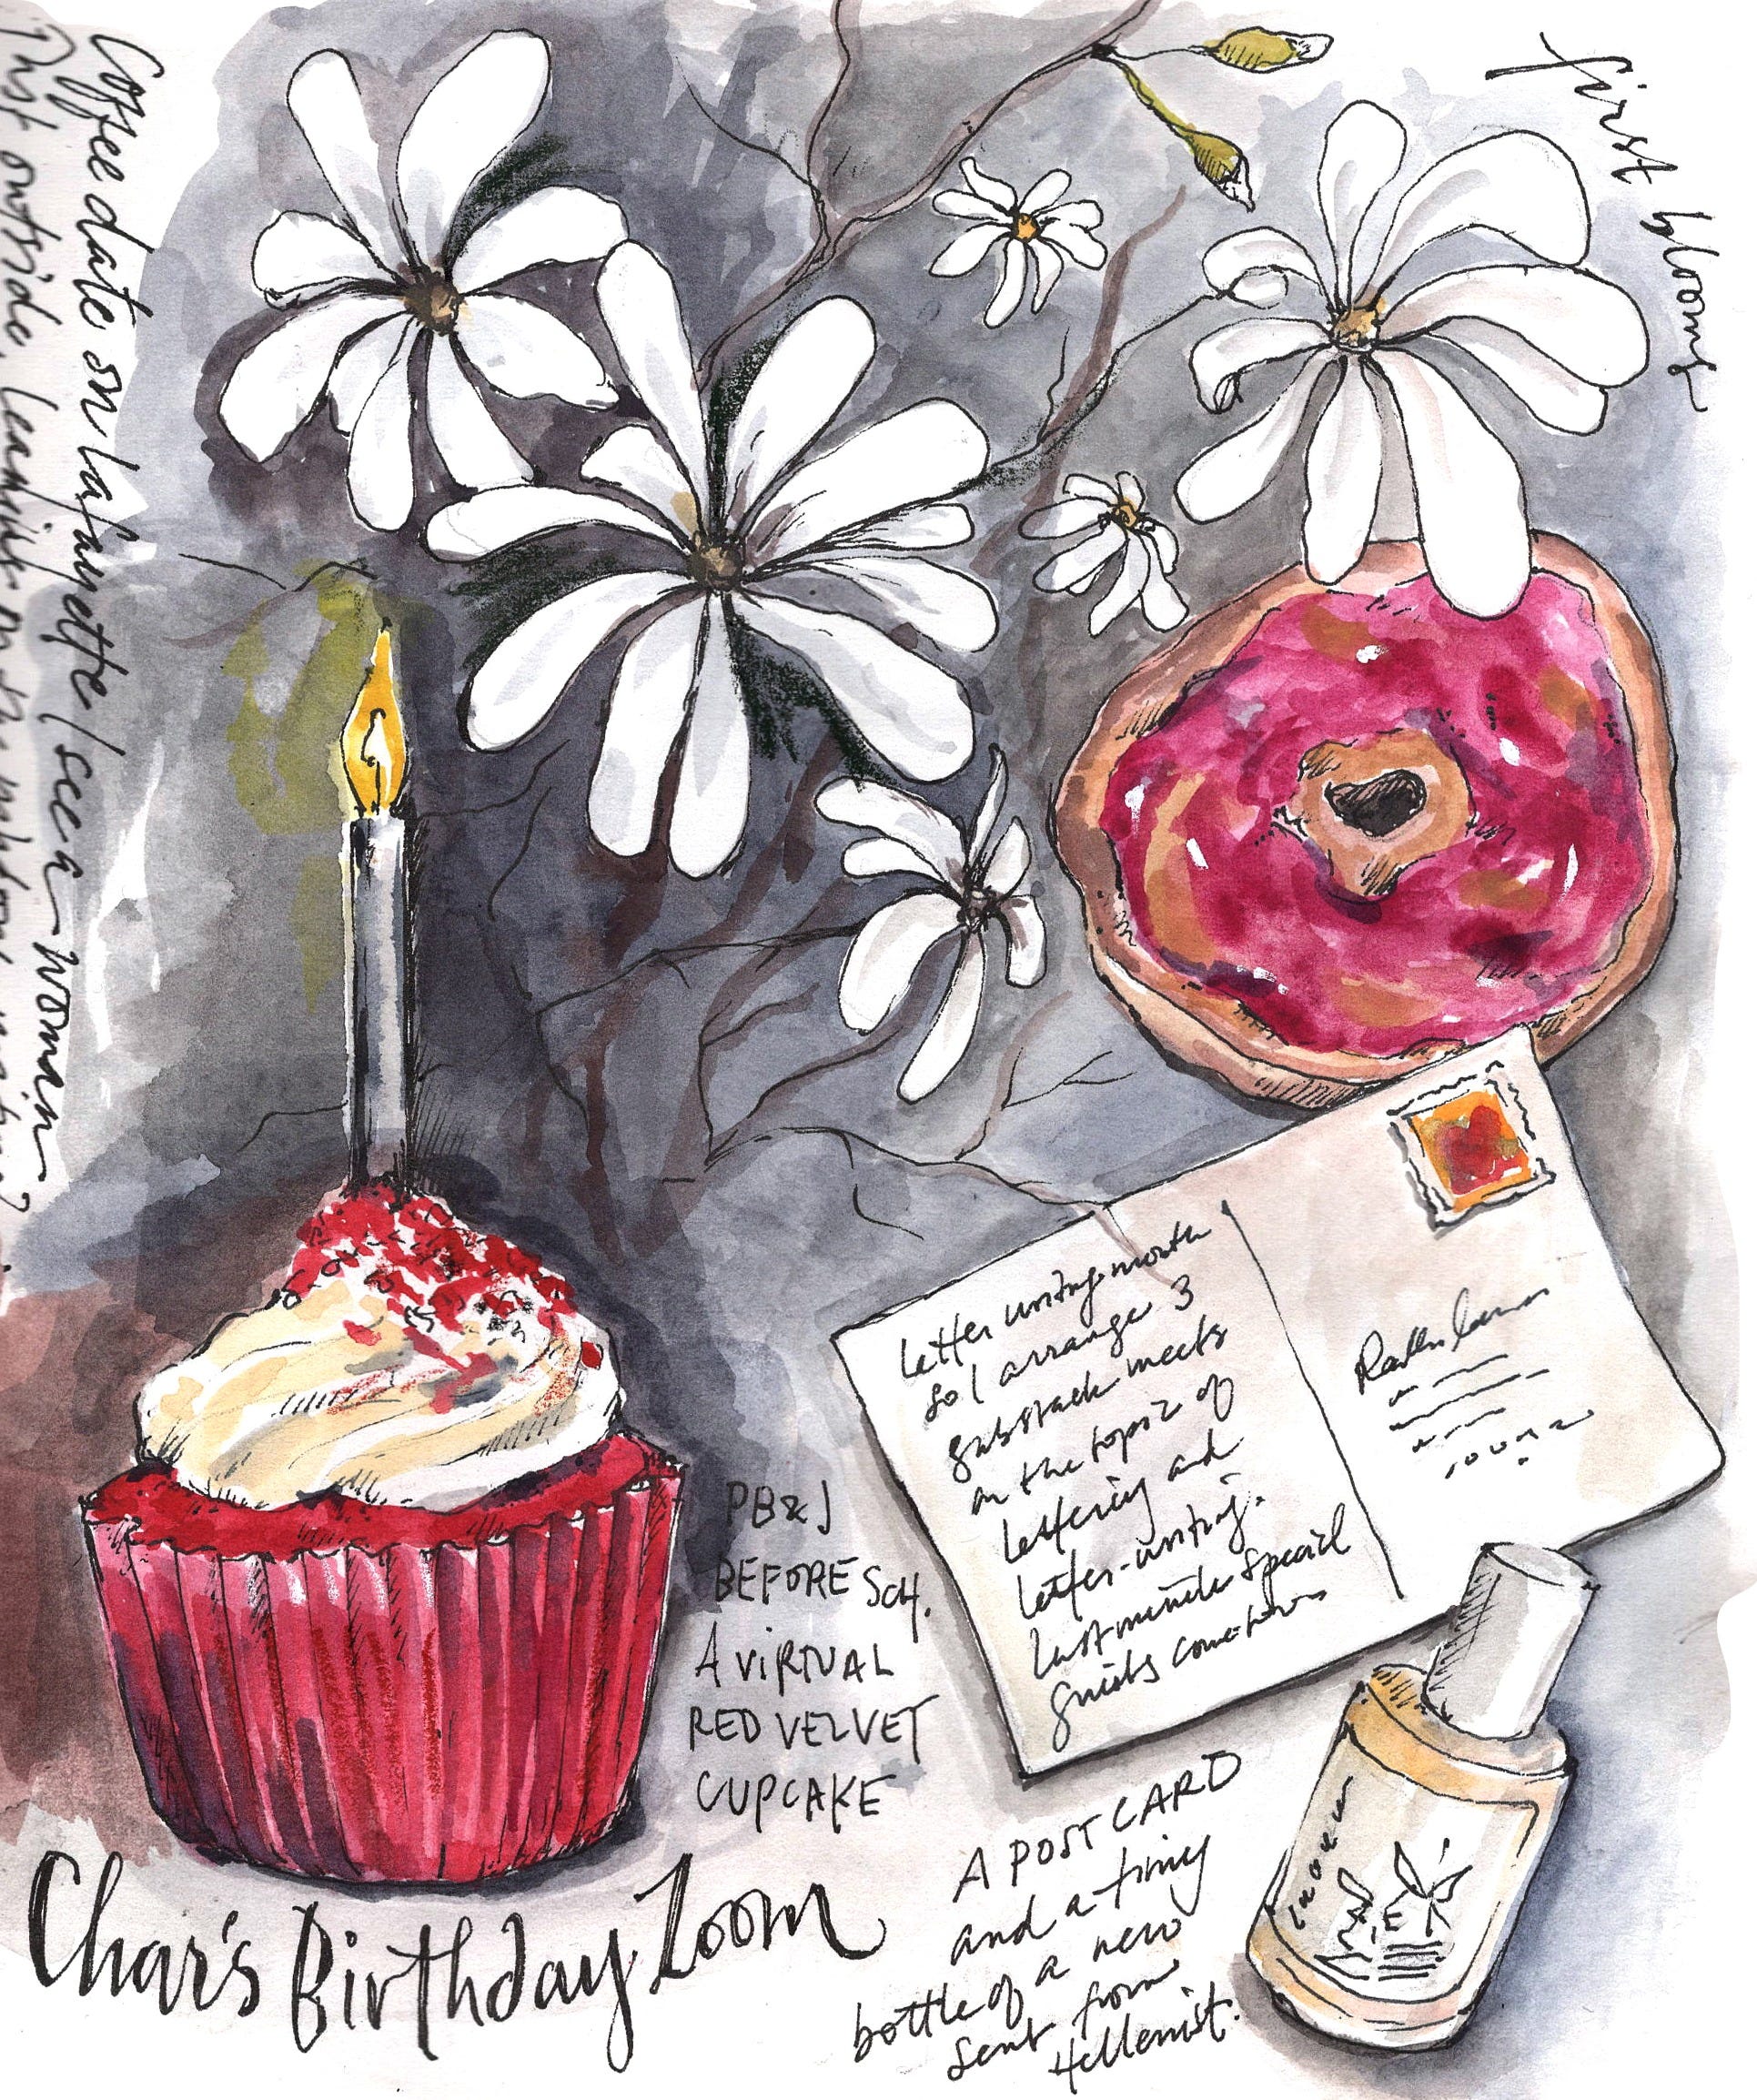 first blooms
Coffee date on Lafayette / see a woman
Just outside, leaning on the
Letter writing month
so I arrange 3
substack meets
on the topic of
lettering and
letter-writing.
Last minute special
guests
PB & J
BEFORE SCH.
A VIRTUAL
RED VELVET
CUPCAKE
Char's Birthday Zoom
A POSTCARD
and a tiny
bottle of a new
sent from